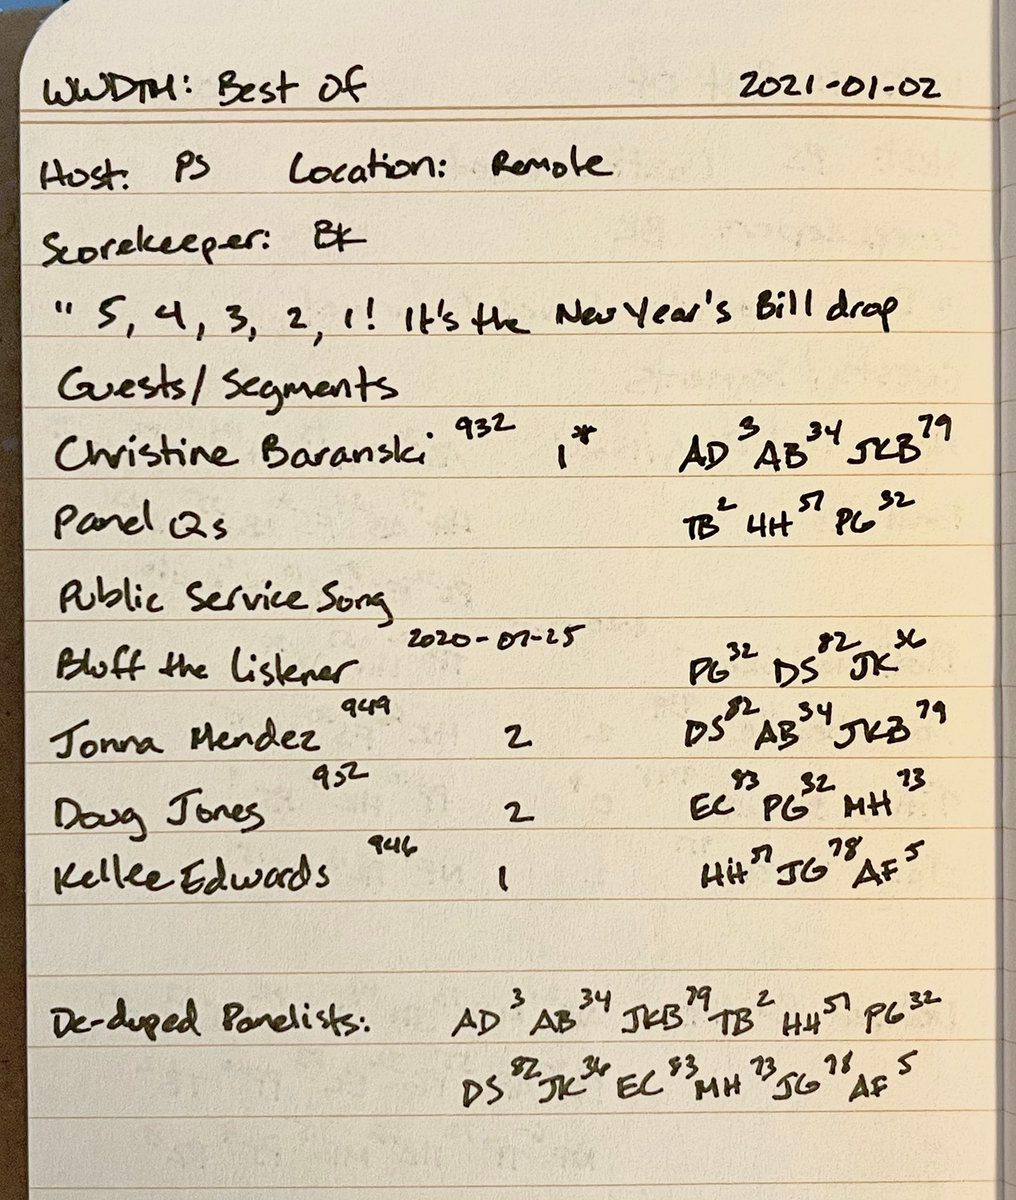 WWDTM: Best Of 2021-01-02
Host: PS Location: Remote
Scorekeeper: BK
" 5, 4, 3, 2, 1! It's the New Year's Bill drop
Guests/Segments
Christine Baranski 932 1* AD 3 AB 34 JKB 79
Panel Qs TB 2 HH 57 PG 32
Public Service Song
Bluff the Listener 2020-07-25 PG 32 DS 82 JK 36
Jonna Mendez 949 2 DS 82 AB 34 JKB 79
Doug Jones 952 2 EC 83 PG 32 MH 73
Kellee Edwards 946 1 HH 57 JG 78 AF 5
De-duped Panelists: AD 3 AB 34 JKB 79 TB 2 HH 57 PG 32
DS 82 JK 36 EC 83 MH 73 JG 78 AF 5